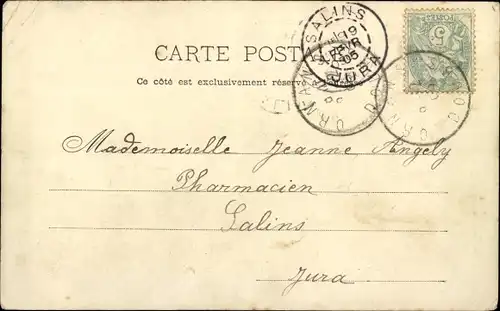 CARTE POST
Ce côté est exclusivement réser
SALINS
19
FEVR
05
JURA
5
Mademoiselle Jeanne Angely
Pharmacien
Salins
Jura